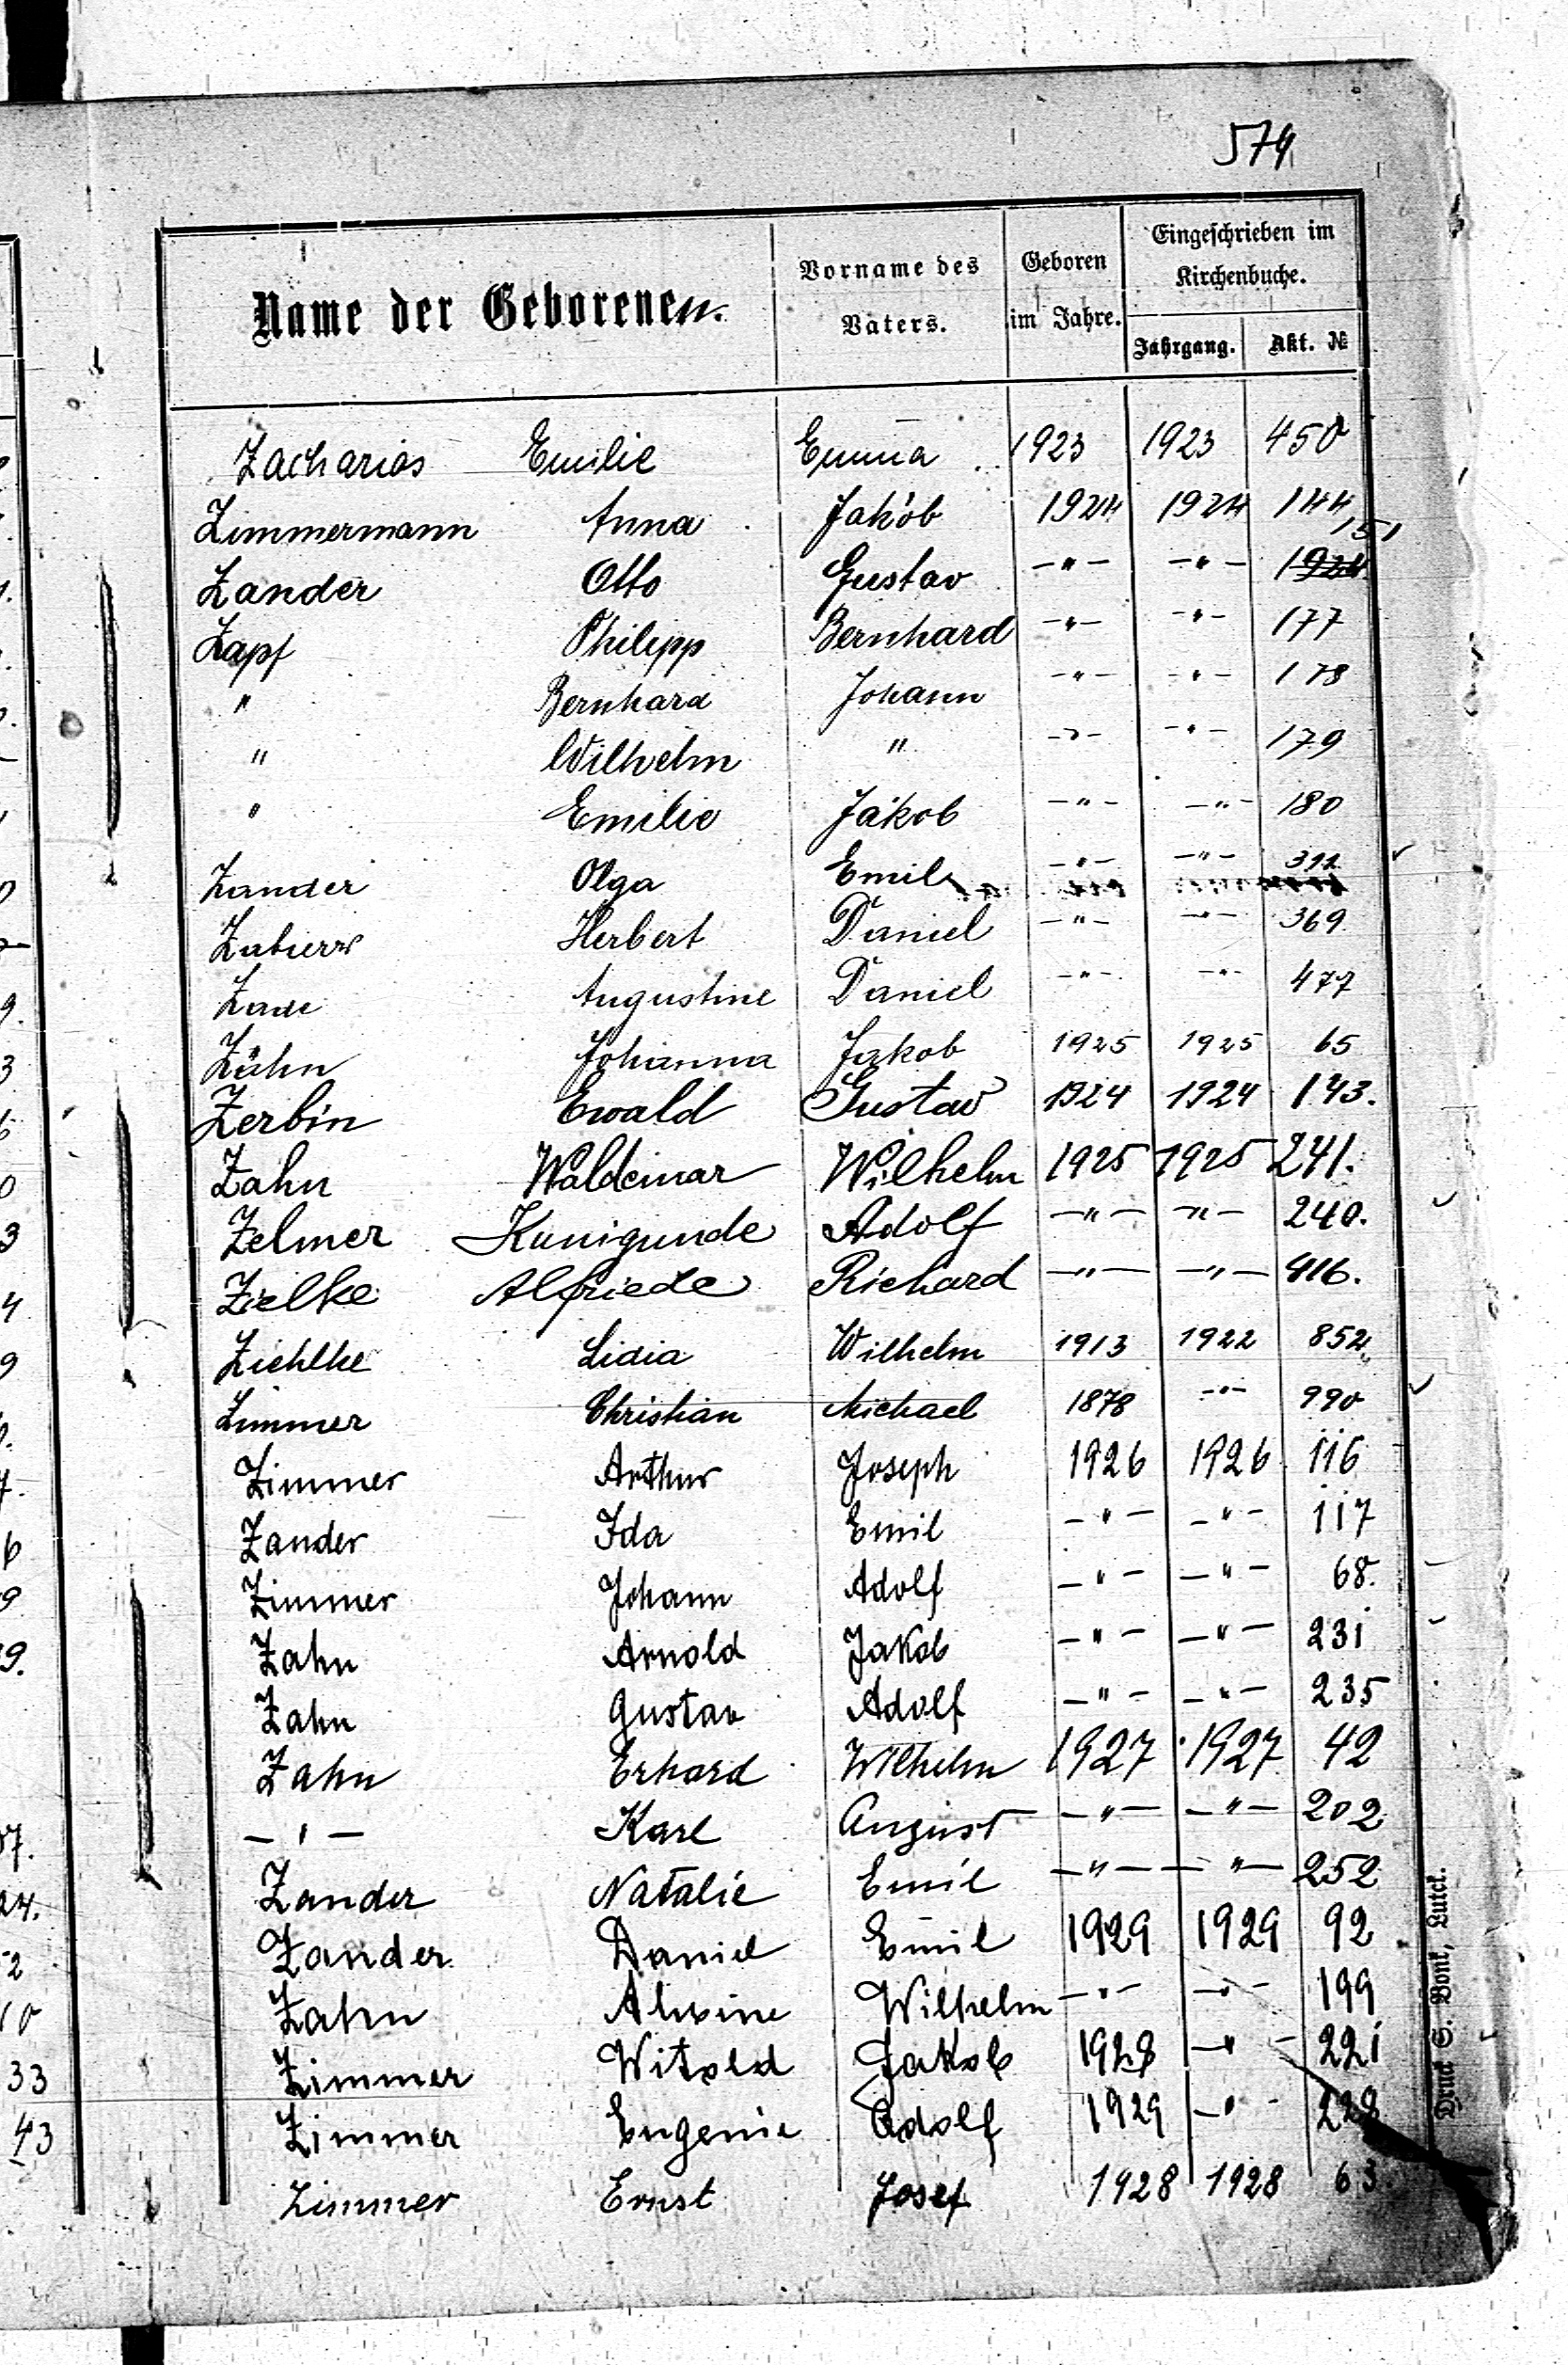 574
Name der Geborenen.
Vorname des Vaters.
Geboren im Jahre.
Eingeschrieben im Kirchenbuche.
Jahrgang. Akt. №
Zacharias Emilie Emma 1923 1923 450
Zimmermann Anna Jakob 1924 1924 144
151
Zander Otto Gustav -"- -"- 1924
Zapf Philipp Bernhard -"- -"- 177
" Bernhard Johann -"- -"- 178
" Wilhelm " -"- -"- 179
" Emilie Jakob -"- -"- 180
Zander Olga Emil -"- -"- 392
Herbert Daniel -"- -"- 369
Augustine Daniel -"- -"- 477
Zähn Johanna Jakob 1925 1925 65
Zerbin Ewald Gustav 1924 1924 143.
Zahn Waldemar Wilhelm 1925 1925 241.
Zelmer Kunigunde Adolf -"- -"- 240.
Zielke Alfriede Richard -"- -"- 416.
Ziehlke Lidia Wilhelm 1913 1922 852
Zimmer Christian Michael 1878 -"- 990
Zimmer Arthur Joseph 1926 1926 116
Zander Ida Emil -"- -"- 117
Zimmer Johann Adolf -"- -"- 68.
Zahn Arnold Jakob -"- -"- 231
Zahn Gustav Adolf -"- -"- 235
Zahn Erhard Wilhelm 1927 1927 42
-"- Karl August -"- -"- 202
Zander Natalie Emil -"- -"- 252
Zander Daniel Emil 1929 1929 92
Zahn Alwine Wilhelm -"- -"- 199
Zimmer Witold Jakob 1928 -"- 221
Zimmer Eugenie Adolf 1929 -"- 228
Zimmer Ernst Josef 1928 1928 63.
Druck S. Bonk, Luzk.